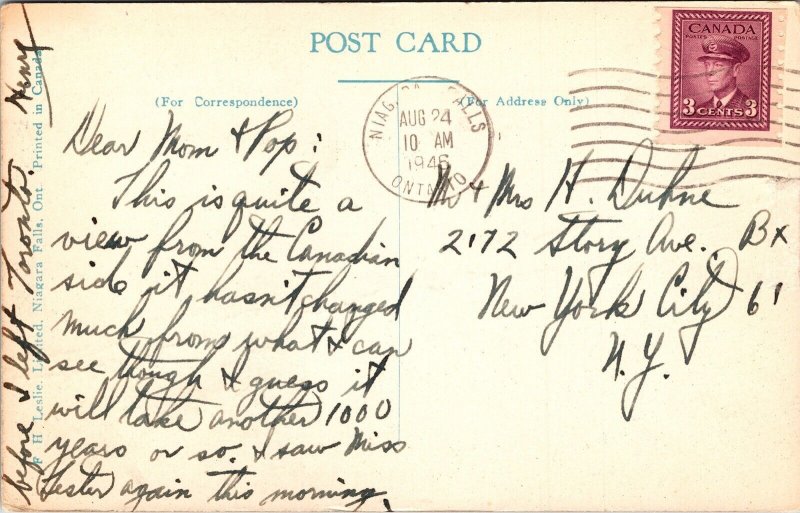 POST CARD
(For Correspondence)
(For Address Only)
CANADA
POSTES POSTAGE
3 CENTS 3
NIAGARA FALLS
AUG 24
10 AM
1946
ONTARIO
Dear Mom & Pop:
This is quite a
view from the Canadian
side it hasn't changed
much from what I can
see though I guess it
will take another 1000
years or so. I saw Miss
Lester again this morning,
before I left Toronto. Henry
Mr & Mrs H. Duhne
2172 Story Ave. Bx
New York City 61
N.Y.
F. H. Leslie, Limited, Niagara Falls, Ont. Printed in Canada